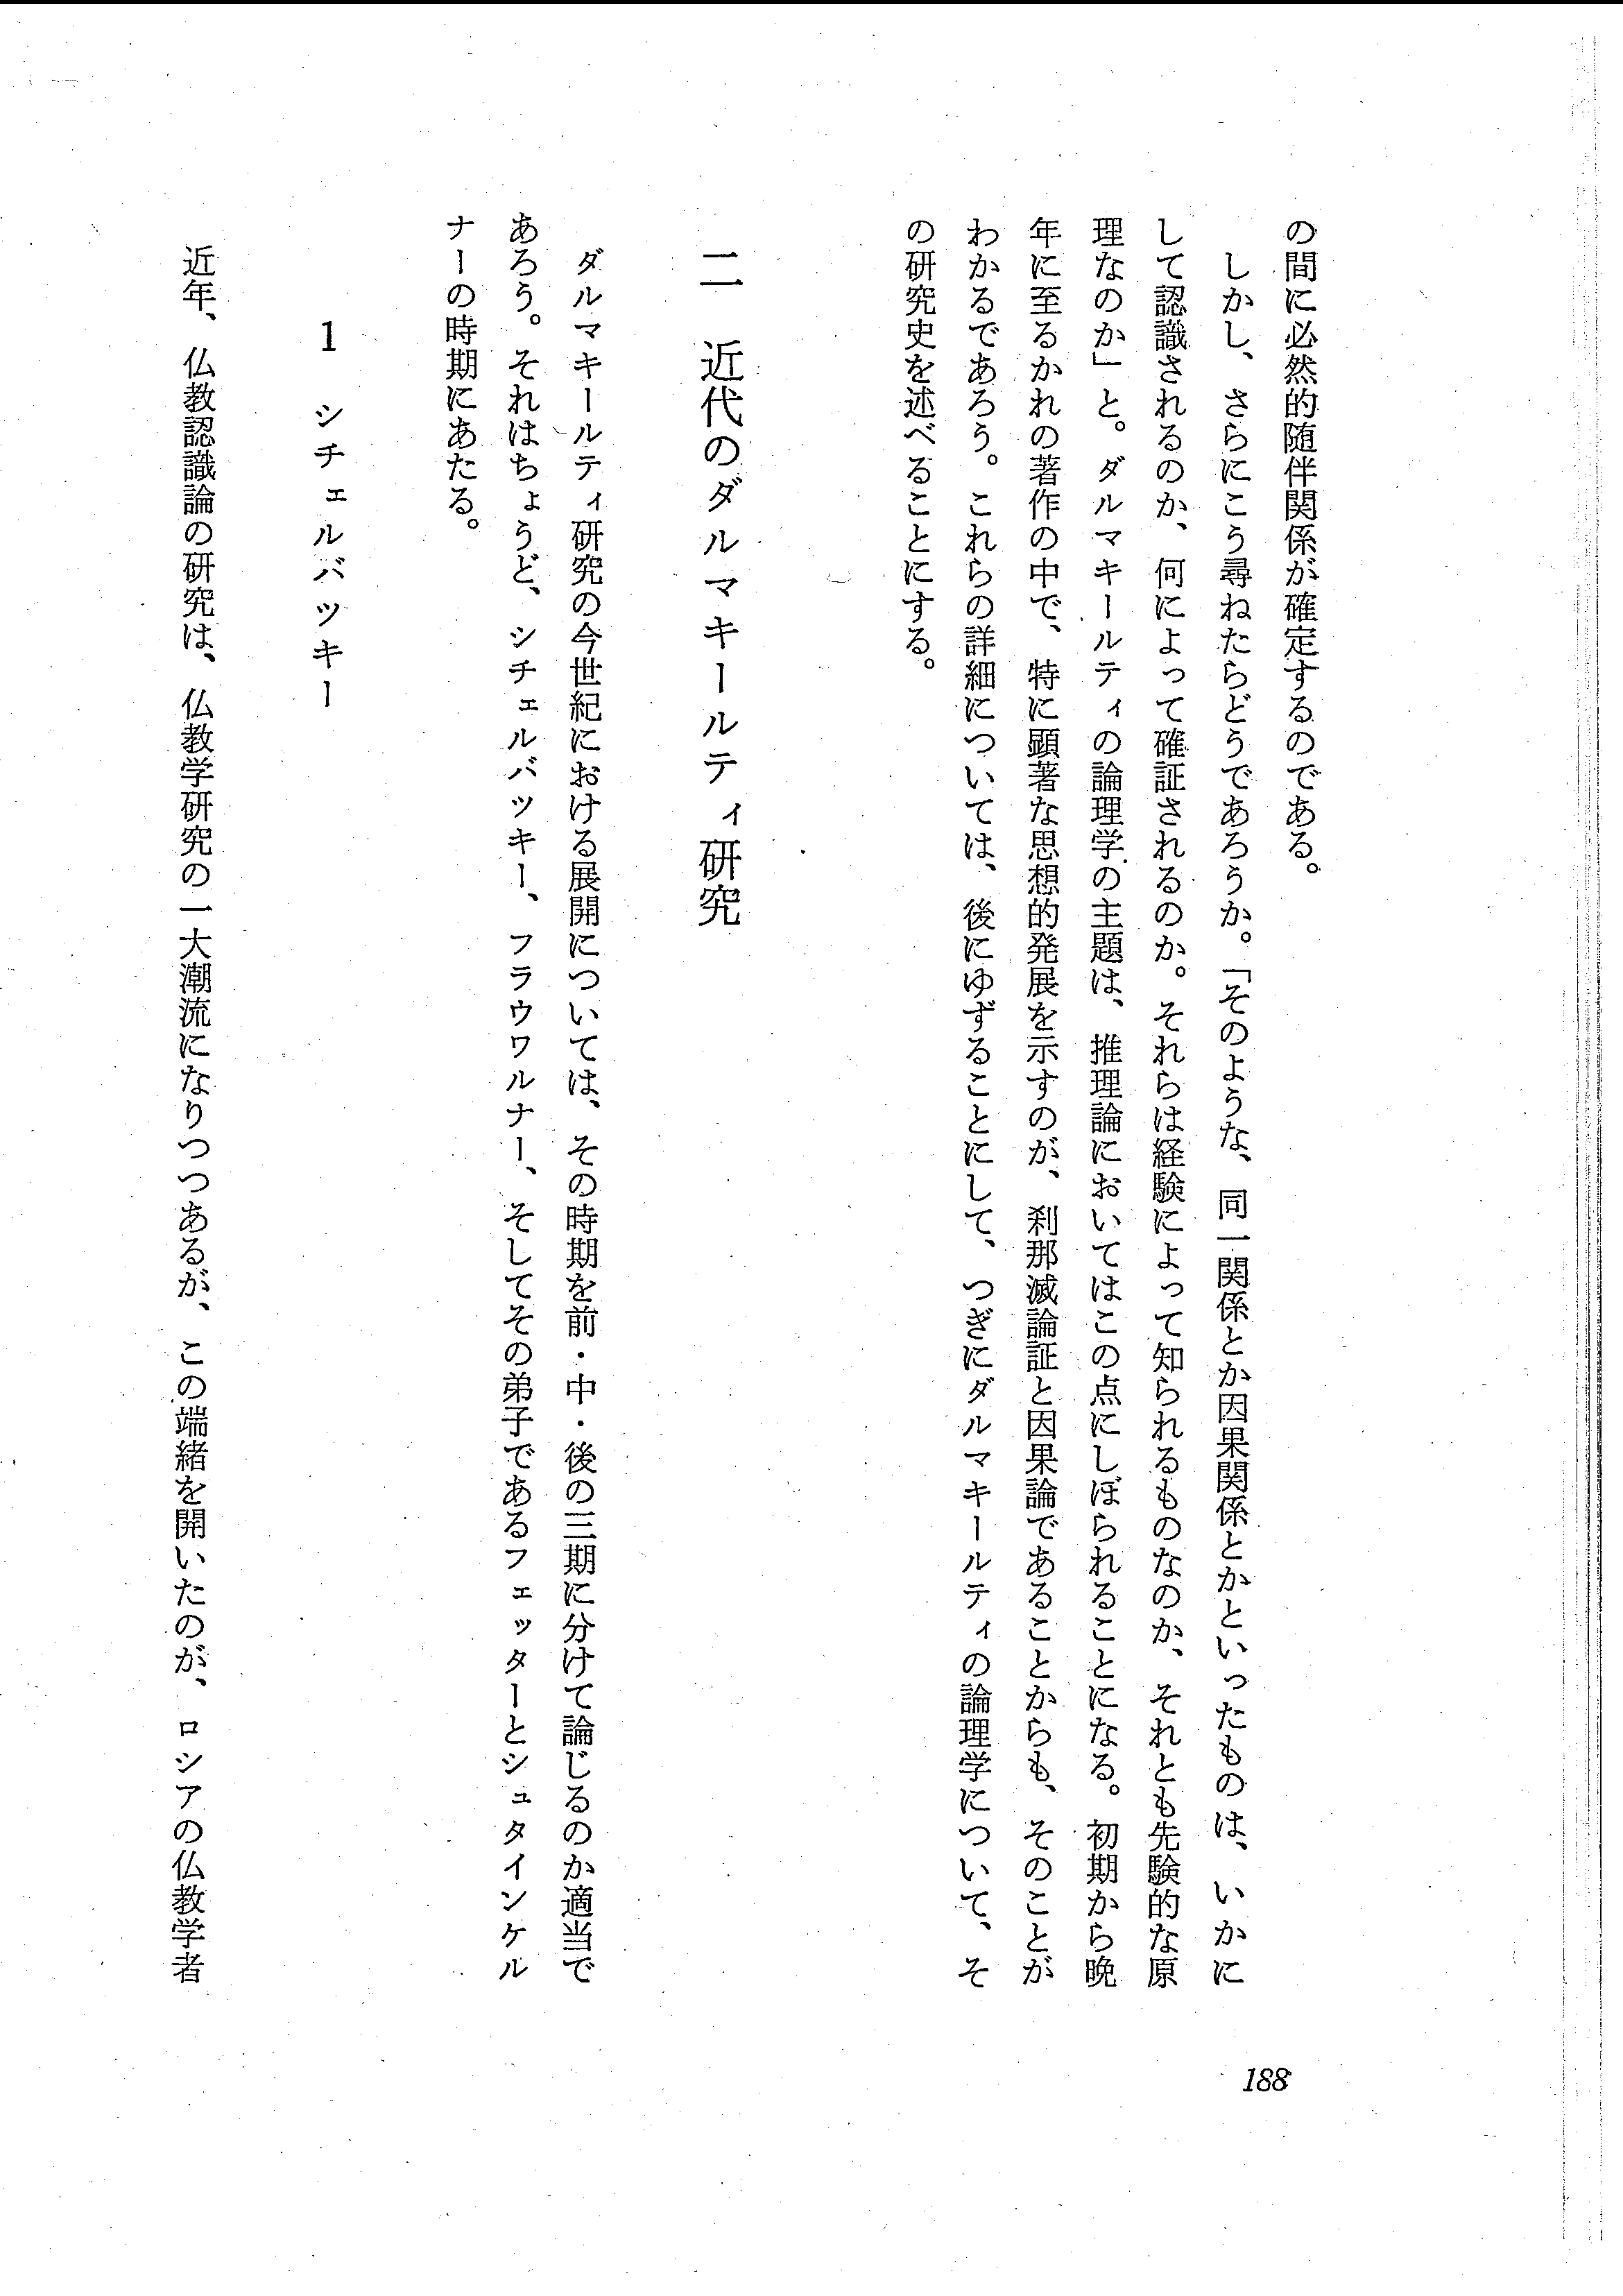 の間に必然的随伴関係が確定するのである。
しかし、さらにこう尋ねたらどうであろうか。「そのような、同一関係とか因果関係とかといったものは、いかに
して認識されるのか、何によって確証されるのか。それらは経験によって知られるものなのか、それとも先験的な原
理なのか」と。ダルマキールティの論理学の主題は、推理論においてはこの点にしぼられることになる。初期から晩
年に至るかれの著作の中で、特に顕著な思想的発展を示すのが、刹那滅論証と因果論であることからも、そのことが
わかるであろう。これらの詳細については、後にゆずることにして、つぎにダルマキールティの論理学について、そ
の研究史を述べることにする。
二 近代のダルマキールティ研究
ダルマキールティ研究の今世紀における展開については、その時期を前・中・後の三期に分けて論じるのか適当で
あろう。それはちょうど、シチェルバッキー、フラウワルナー、そしてその弟子であるフェッターとシュタインケル
ナーの時期にあたる。
1 シチェルバツキー
近年、仏教認識論の研究は、仏教学研究の一大潮流になりつつあるが、この端緒を開いたのが、ロシアの仏教学者
188